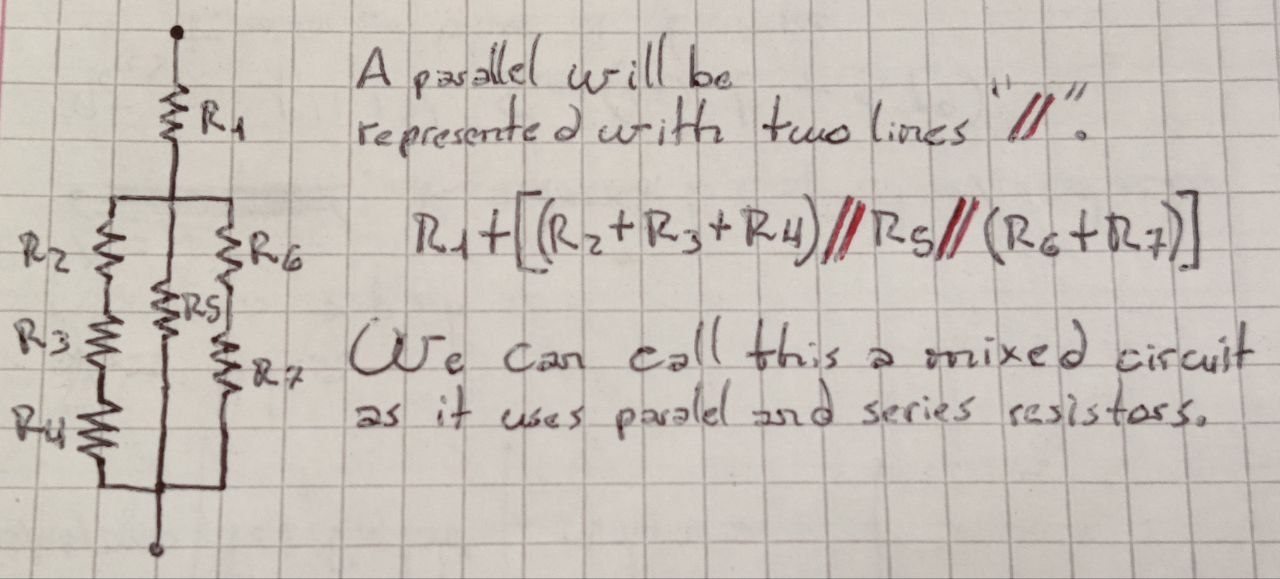 R1
R2
R3
R4
R5
R6
R7
A parallel will be
represented with two lines "//".
R1+[(R2+R3+R4)//R5//(R6+R7)]
We can call this a mixed circuit
as it uses paralel and series resistors.